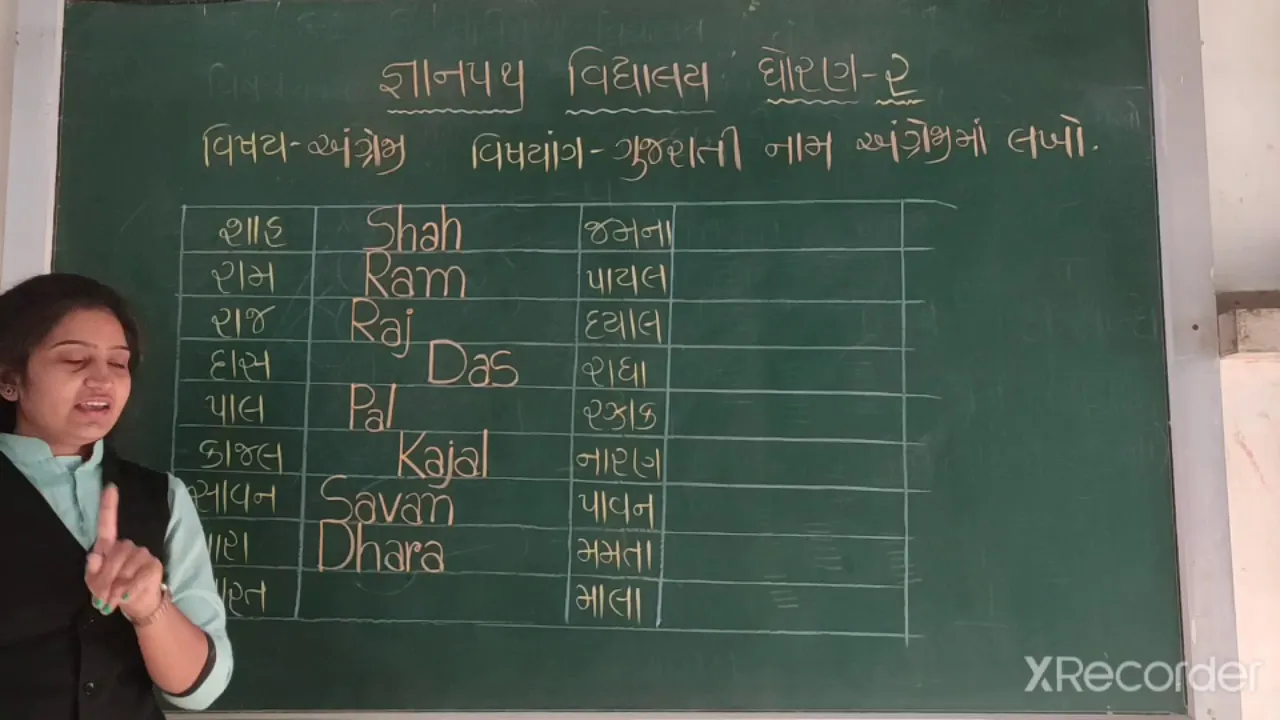 જ્ઞાનપથ વિદ્યાલય ધોરણ-૨
વિષય-અંગ્રેજી વિષયાંગ-ગુજરાતી નામ અંગ્રેજીમાં લખો.
શાહ Shah જમના
રામ Ram પાયલ
રાજ Raj દયાલ
દાસ Das રાધા
પાલ Pal રઝાક
કાજલ Kajal નારણ
સાવન Savan પાવન
Dhara મમતા
માલા
XRecorder